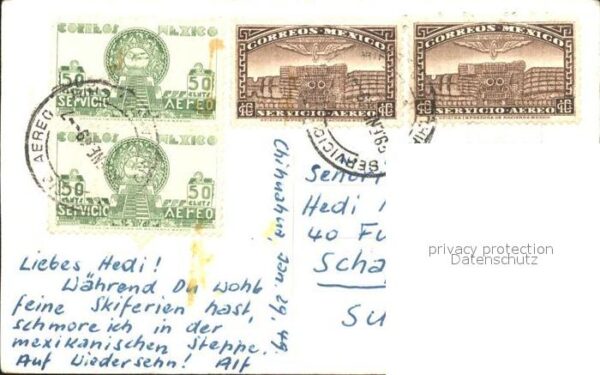 CORREOS MEXICO
50 50
CENTS CENTS
SERVICIO AEREO
CORREOS MEXICO
50 50
CENTS CENTS
SERVICIO AEREO
CORREOS·MEXICO
10 SERVICIO·AEREO 10
CORREOS·MEXICO
10 SERVICIO·AEREO 10
SERVICIO AEREO
SERVICIO
Chihuahua, Jan. 29. 49.
Liebes Hedi!
Während Du wohl
feine Skiferien hast,
schmore ich in der
mexikanischen Steppe.
Auf Wiedersehn! Alf
Señor
Hedi
40 Fu
Scha
Su
privacy protection
Datenschutz